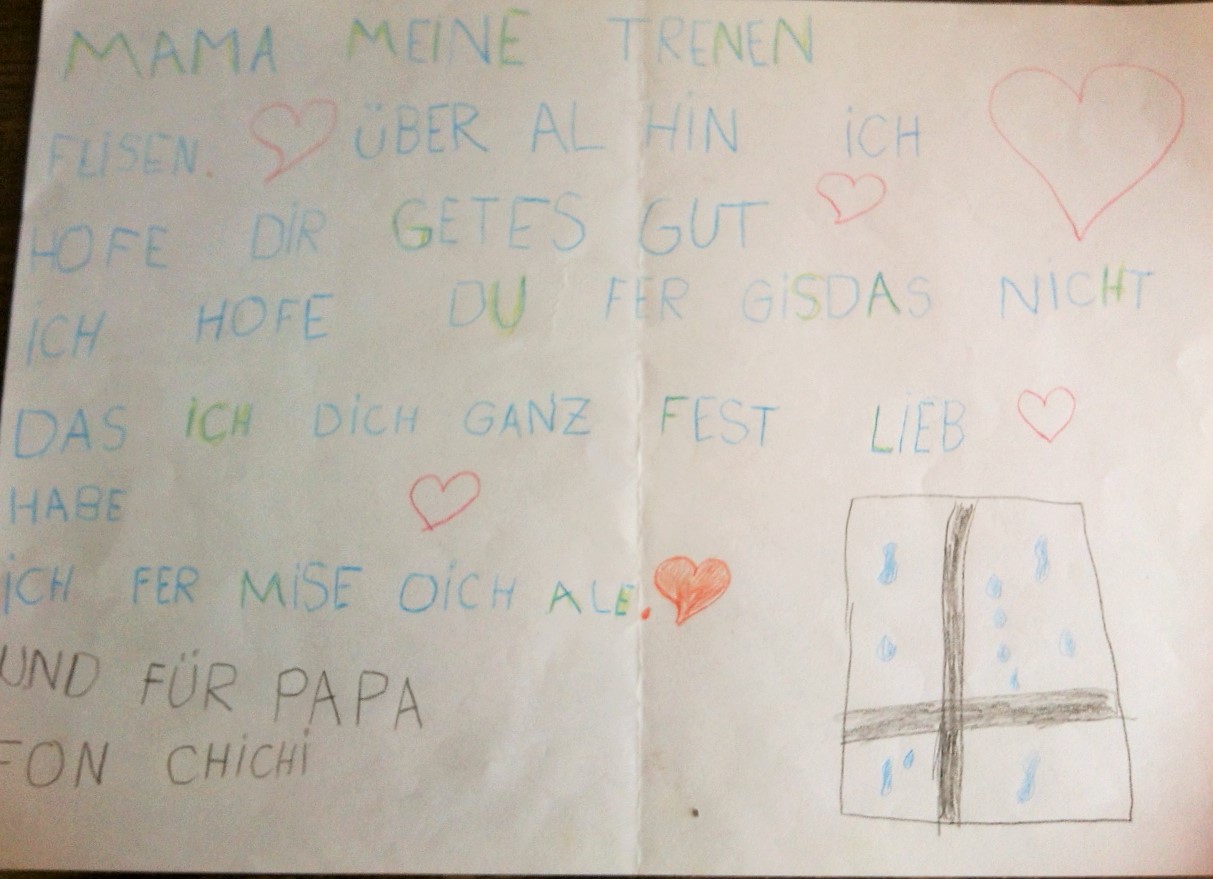 MAMA MEINE TRENEN
FLISEN. ÜBER AL HIN ICH
HOFE DIR GETES GUT
ICH HOFE DU FER GISDAS NICHT
DAS ICH DICH GANZ FEST LIEB
HABE
ICH FER MISE DICH ALE.
UND FÜR PAPA
FON CHICHI